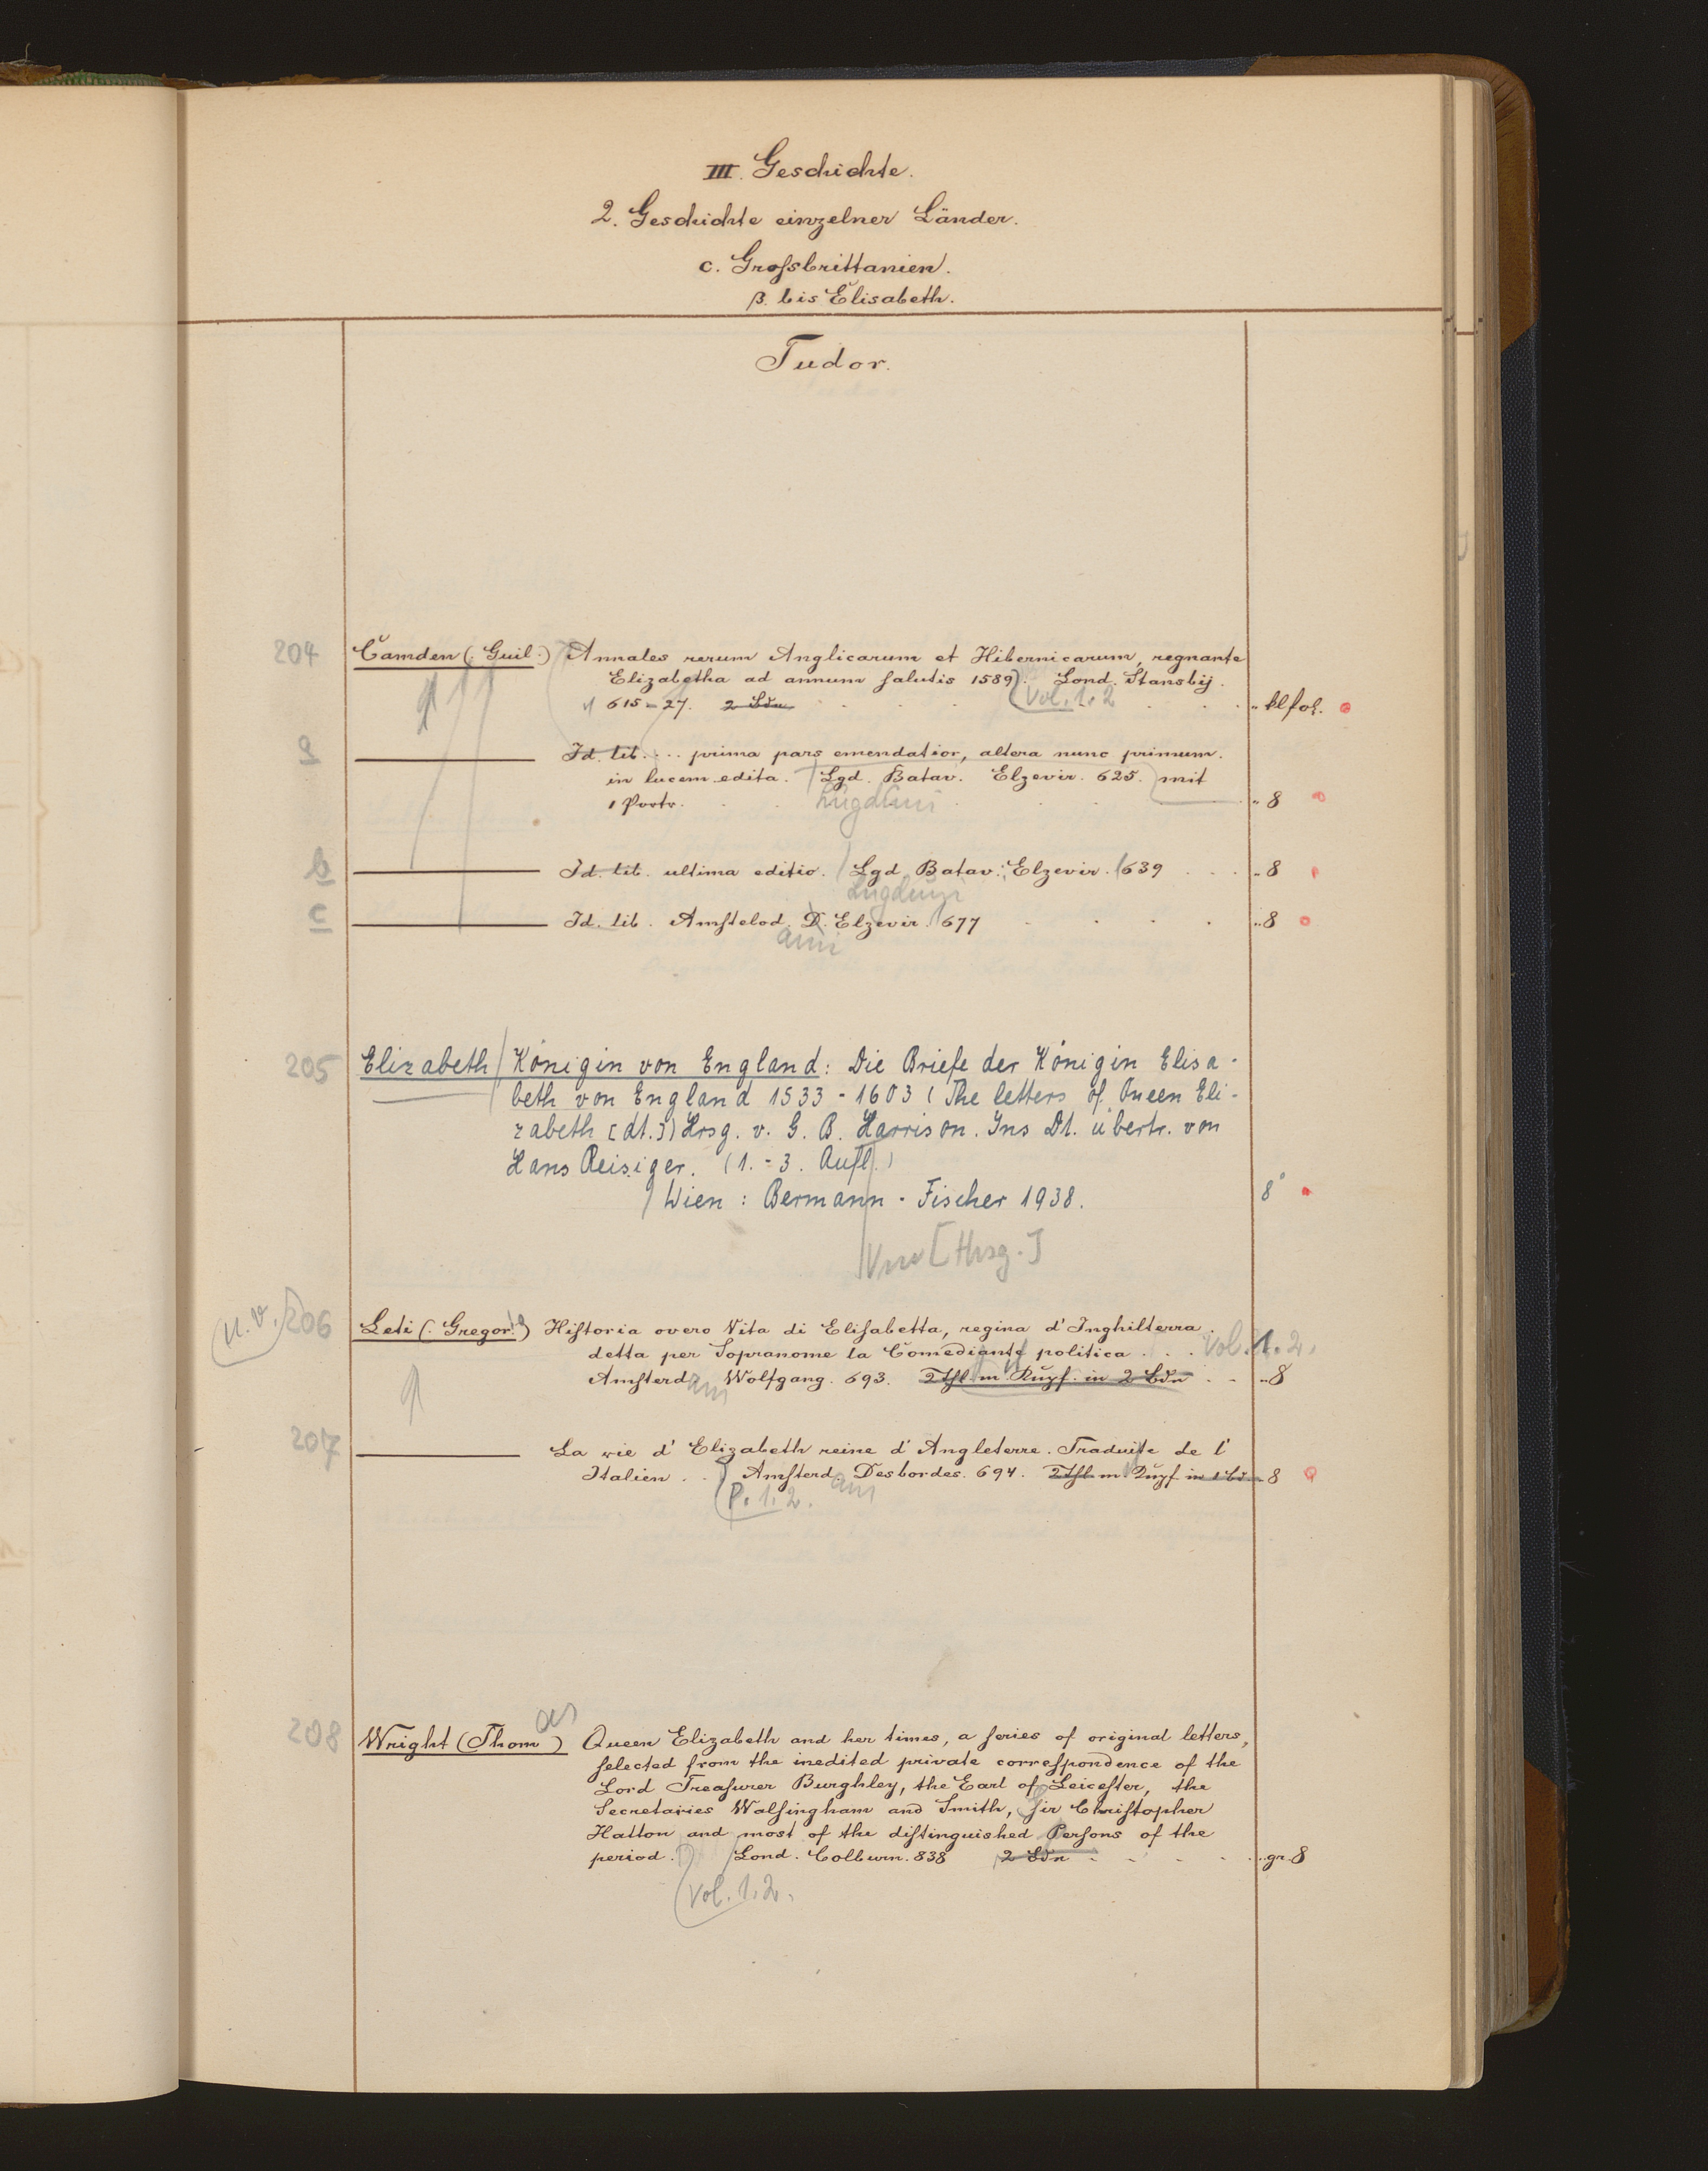 III. Geschichte.
2. Geschichte einzelner Länder.
c. Grosſbrittanien.
β. bis Elisabeth.
Tudor.
204 Camden (: Guil :) Annales rerum Anglicarum et Hibernicarum, regnante
Elizabetha ad annum ſalutis 1589). Lond. Stansbij.
1615-27. 2 Bdn Vol. 1. 2 " klfol.
a Id. lib. ... prima pars emendatior, altera nunc primum
in lucem edita. Lgd. Batav. Elzevir. 625. mit
1 Portr. Lugduni " 8
b Id. lib. ultima editio. Lgd. Batav. Elzevir. 1639 " 8
Lugduni
c Id. lib. Amſtelod. D. Elzevir. 1677 " 8
ami
205 Elizabeth Königin von England: Die Briefe der Königin Elisa-
beth von England 1533-1603 (The letters of Queen Eli-
zabeth [dt.]) Hrsg. v. G. B. Harrison. Ins Dt. übertr. von
Hans Reisiger. (1.-3. Aufl.)
Wien: Bermann-Fischer 1938. 8°
[Hrsg.]
(u. v.) 206 Leti (: Gregorio) Hiſtoria overo Vita di Eliſabetta, regina d'Inghilterra.
detta per Sopranome la Comediante politica . . . Vol. 1. 2.
Amſterd. am Wolfgang. 693. 2 Thl. m Kupf. in 2 Bdn " 8
207 La vie d'Elizabeth reine d'Angleterre. Traduite de l'
Italien . . Amſterd. am Desbordes. 694. 2 Thl. m. Kupf. in 1 Bd. 8
P. 1. 2.
208 Wright (Thomas) Queen Elizabeth and her times, a ſeries of original letters,
ſelected from the inedited private correſpondence of the
Lord Treaſurer Burghley, the Earl of Leiceſter, the
Secretaries Walſingham and Smith, ſir Chriſtopher
Hatton and most of the diſtinguished Perſons of the
period. Lond. Colburn. 838 2 Bdn " gr. 8
Vol. 1. 2.